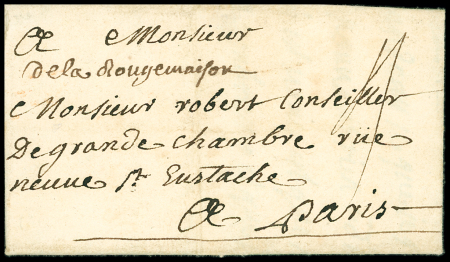 A Monsieur
De la Rougemaison
Monsieur robert Conseiller
De grande chambre rüe
neuue St Eustache
A Paris